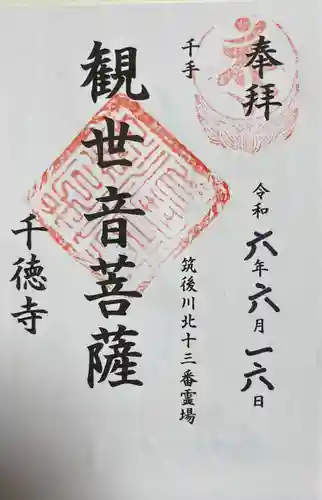 奉拝
令和六年六月一六日
千手
筑後川北十三番霊場
観世音菩薩
千徳寺